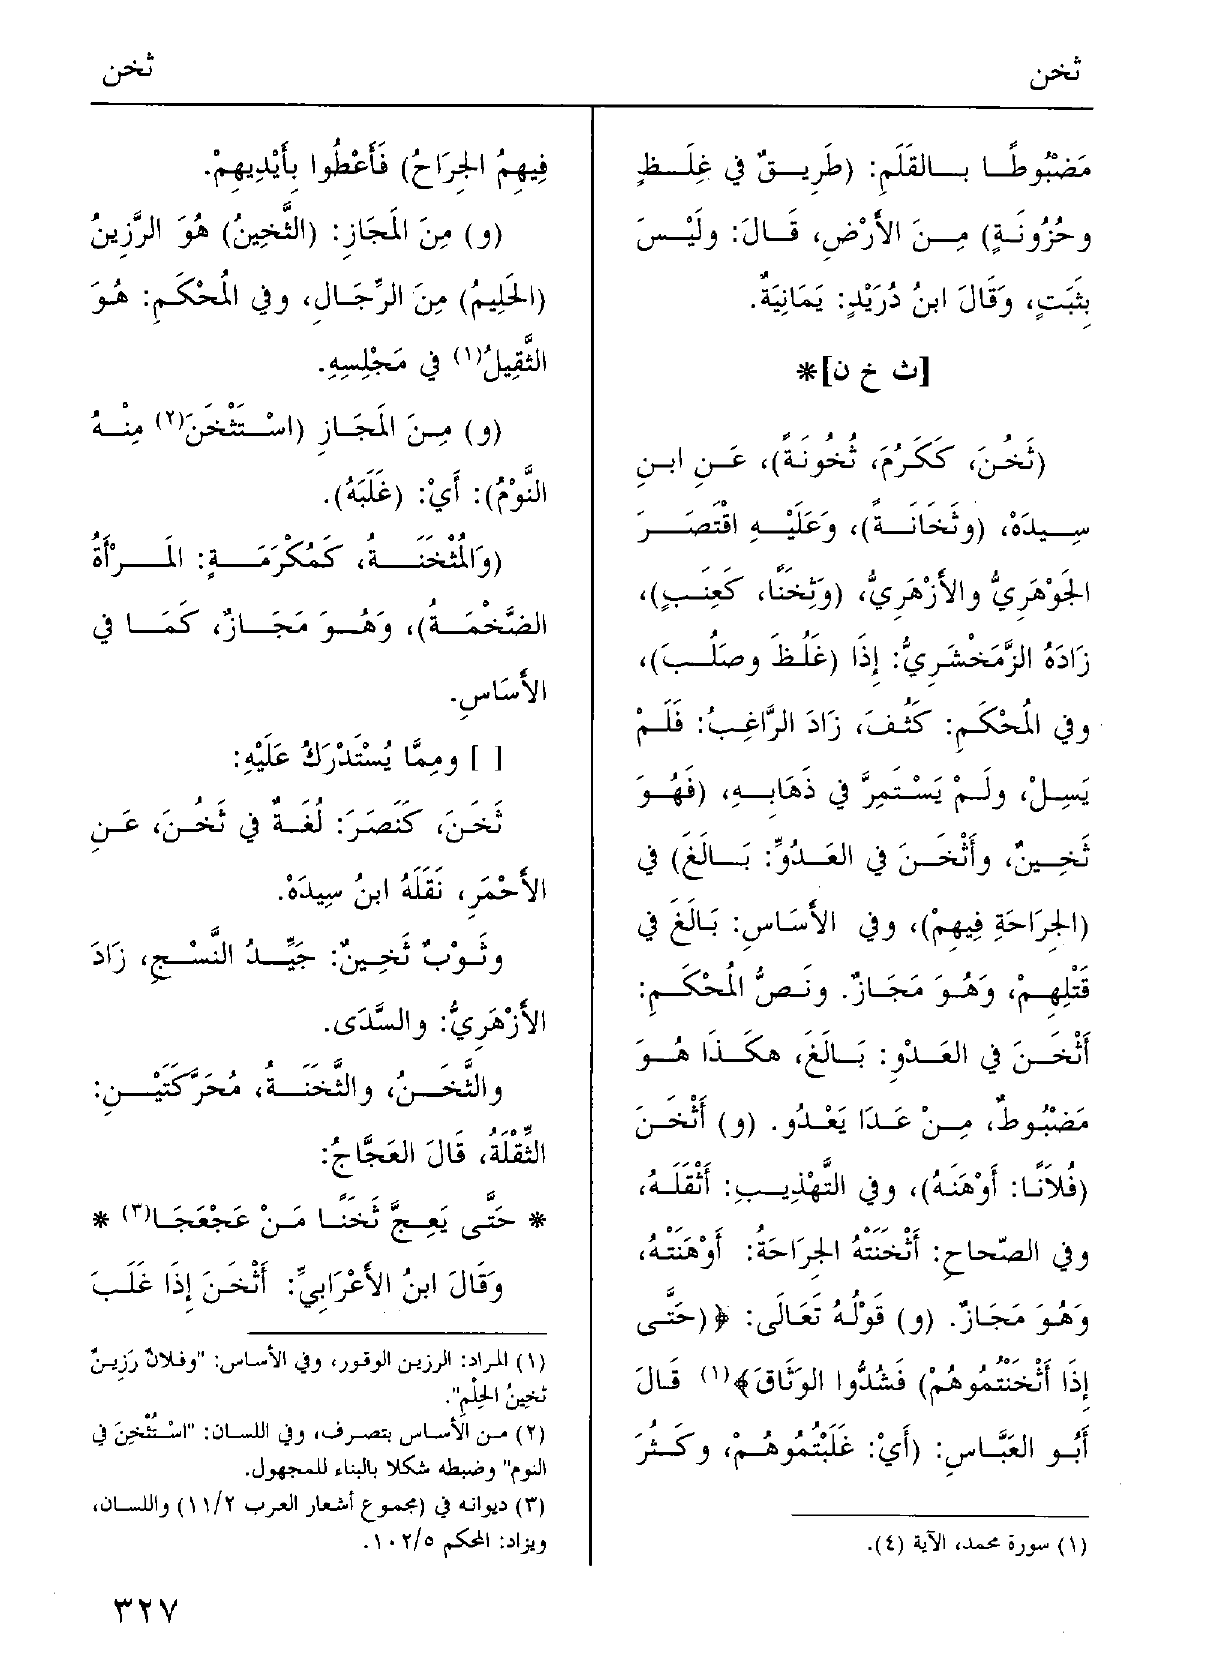 ثخن
ثخن
مَضْبُوطًا بـالقَلَمِ: (طَرِيـقٌ في غِلَـظٍ
وحُزُونَـةٍ) مِـنَ الأَرْضِ، قَـالَ: ولَيْـسَ
بِثَبَتٍ، وَقَالَ ابنُ دُرَيْدٍ: يَمَانِيَةٌ.
[ث خ ن]*
(ثَخُنَ، كَكَرُمَ، ثُخُونَـةً)، عَـنِ ابـنِ
سِـيدَهْ، (وثَخَانَـةً)، وَعَلَيْـهِ اقْتَصَـرَ
الجَوْهَرِيُّ والأَزْهَرِيُّ، (وَثِخَنًا، كَعِنَـبٍ)،
زَادَهُ الزَّمَخْشَرِيُّ: إِذَا (غَلُظَ وصَلُـبَ)،
وفي المُحْكَمِ: كَثُفَ، زَادَ الرَّاغِبُ: فَلَمْ
يَسِـلْ، ولَـمْ يَسْـتَمِرَّ في ذَهَابِـهِ، (فَهُـوَ
ثَخِـينٌ، وأَثْخَـنَ في العَـدُوِّ: بَـالَغَ) في
(الجِرَاحَةِ فِيهِمْ)، وفي الأَسَاسِ: بَالَغَ في
قَتْلِهِـمْ، وَهُـوَ مَجَـازٌ. ونَـصُّ المُحْكَـمِ:
أَثْخَـنَ في العَـدْوِ: بَـالَغَ، هكَـذَا هُـوَ
مَضْبُوطٌ، مِـنْ عَـدَا يَعْـدُو. (و) أَثْخَـنَ
(فُلَانًا: أَوْهَنَهُ)، وفي التَّهْذِيـبِ: أَثْقَلَهُ،
وفي الصِّحَاحِ: أَثْخَنَتْهُ الجِرَاحَةُ: أَوْهَنَتْهُ،
وَهُوَ مَجَازٌ. (و) قَوْلُهُ تَعَالَى: ﴿(حَتَّى
إِذَا أَثْخَنْتُمُوهُمْ) فَشُدُّوا الوَثَاقَ﴾(١) قَالَ
أَبُو العَبَّاسِ: (أَيْ: غَلَبْتُمُوهُـمْ، وكَـثُرَ
(١) سورة محمد، الآية (٤).
فِيهِمُ الجِرَاحُ) فَأَعْطُوا بِأَيْدِيهِمْ.
(و) مِنَ المَجَازِ: (الثَّخِينُ) هُوَ الرَّزِينُ
(الحَلِيمُ) مِنَ الرِّجَـالِ، وفي المُحْكَـمِ: هُـوَ
الثَّقِيلُ(١) في مَجْلِسِهِ.
(و) مِـنَ المَجَـازِ (اسْـتَثْخَنَ(٢) مِنْـهُ
النَّوْمُ): أَيْ: (غَلَبَهُ).
(وَالمُثْخَنَـةُ، كَمُكْرَمَـةٍ: المَـرْأَةُ
الضَّخْمَـةُ)، وَهُـوَ مَجَـازٌ، كَمَـا في
الأَسَاسِ.
[ ] ومِمَّا يُسْتَدْرَكُ عَلَيْهِ:
ثَخَنَ، كَنَصَرَ: لُغَـةٌ في ثَخُـنَ، عَـنِ
الأَحْمَرِ، نَقَلَهُ ابنُ سِيدَهْ.
وثَـوْبٌ ثَخِـينٌ: جَيِّـدُ النَّسْـجِ، زَادَ
الأَزْهَرِيُّ: والسَّدَى.
والثَّخَـنُ، والثَّخَنَـةُ، مُحَرَّكَتَيْـنِ:
الثِّقْلَةُ، قَالَ العَجَّاجُ:
* حَتَّى يَعِـجَّ ثَخَنًـا مَـنْ عَجْعَجَـا(٣) *
وَقَالَ ابنُ الأَعْرَابِيِّ: أَثْخَـنَ إِذَا غَلَـبَ
(١) المراد: الرزين الوقور، وفي الأساس: "وفلانٌ رَزِينٌ
ثَخِينُ الحِلْمِ".
(٢) مـن الأسـاس بتصـرف، وفي اللسـان: "اسْـتُثْخِنَ في
النوم" وضبطه شكلا بالبناء للمجهول.
(٣) ديوانه في (مجموع أشعار العرب ١١/٢) واللسـان،
ويزاد: المحكم ١٠٢/٥.
٣٢٧